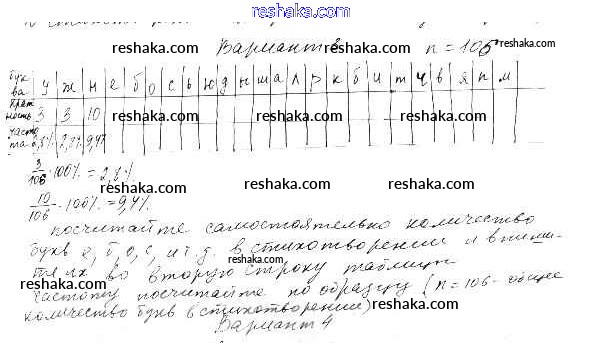 www.reshaka.com
Вариант 3 n=106
reshaka.com reshaka.com
Бук ва у ж н е б о с ь ю д ы ш а л р к в и т ч в я п м
Крат ность 3 3 10
reshaka.com reshaka.com reshaka.com
часто та 2,8% 2,8% 9,4%
3/106 · 100% = 2,8%
reshaka.com
10/106 · 100% = 9,4%
reshaka.com reshaka.com
посчитайте самостоятельно количество
букв е, б, о, с, и т.д. в стихотворении и впиши-
reshaka.com
те их во вторую строку таблицы
reshaka.com reshaka.com
частоту посчитайте по образцу (n=106 - общее
количество букв в стихотворении)
Вариант 4
reshaka.com